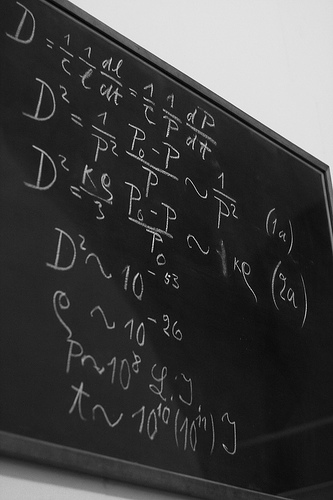 D = 1/c 1/l dl/dt = 1/c 1/P dP/dt
D² = 1/P² P₀-P/P ~ 1/P² (1a)
D² = κρ/3 P₀-P/P₀ ~ 1/3 κρ (2a)
D² ~ 10⁻⁵³
ρ ~ 10⁻²⁶
P ~ 10⁸ L. J.
t ~ 10¹⁰ (10¹¹) J